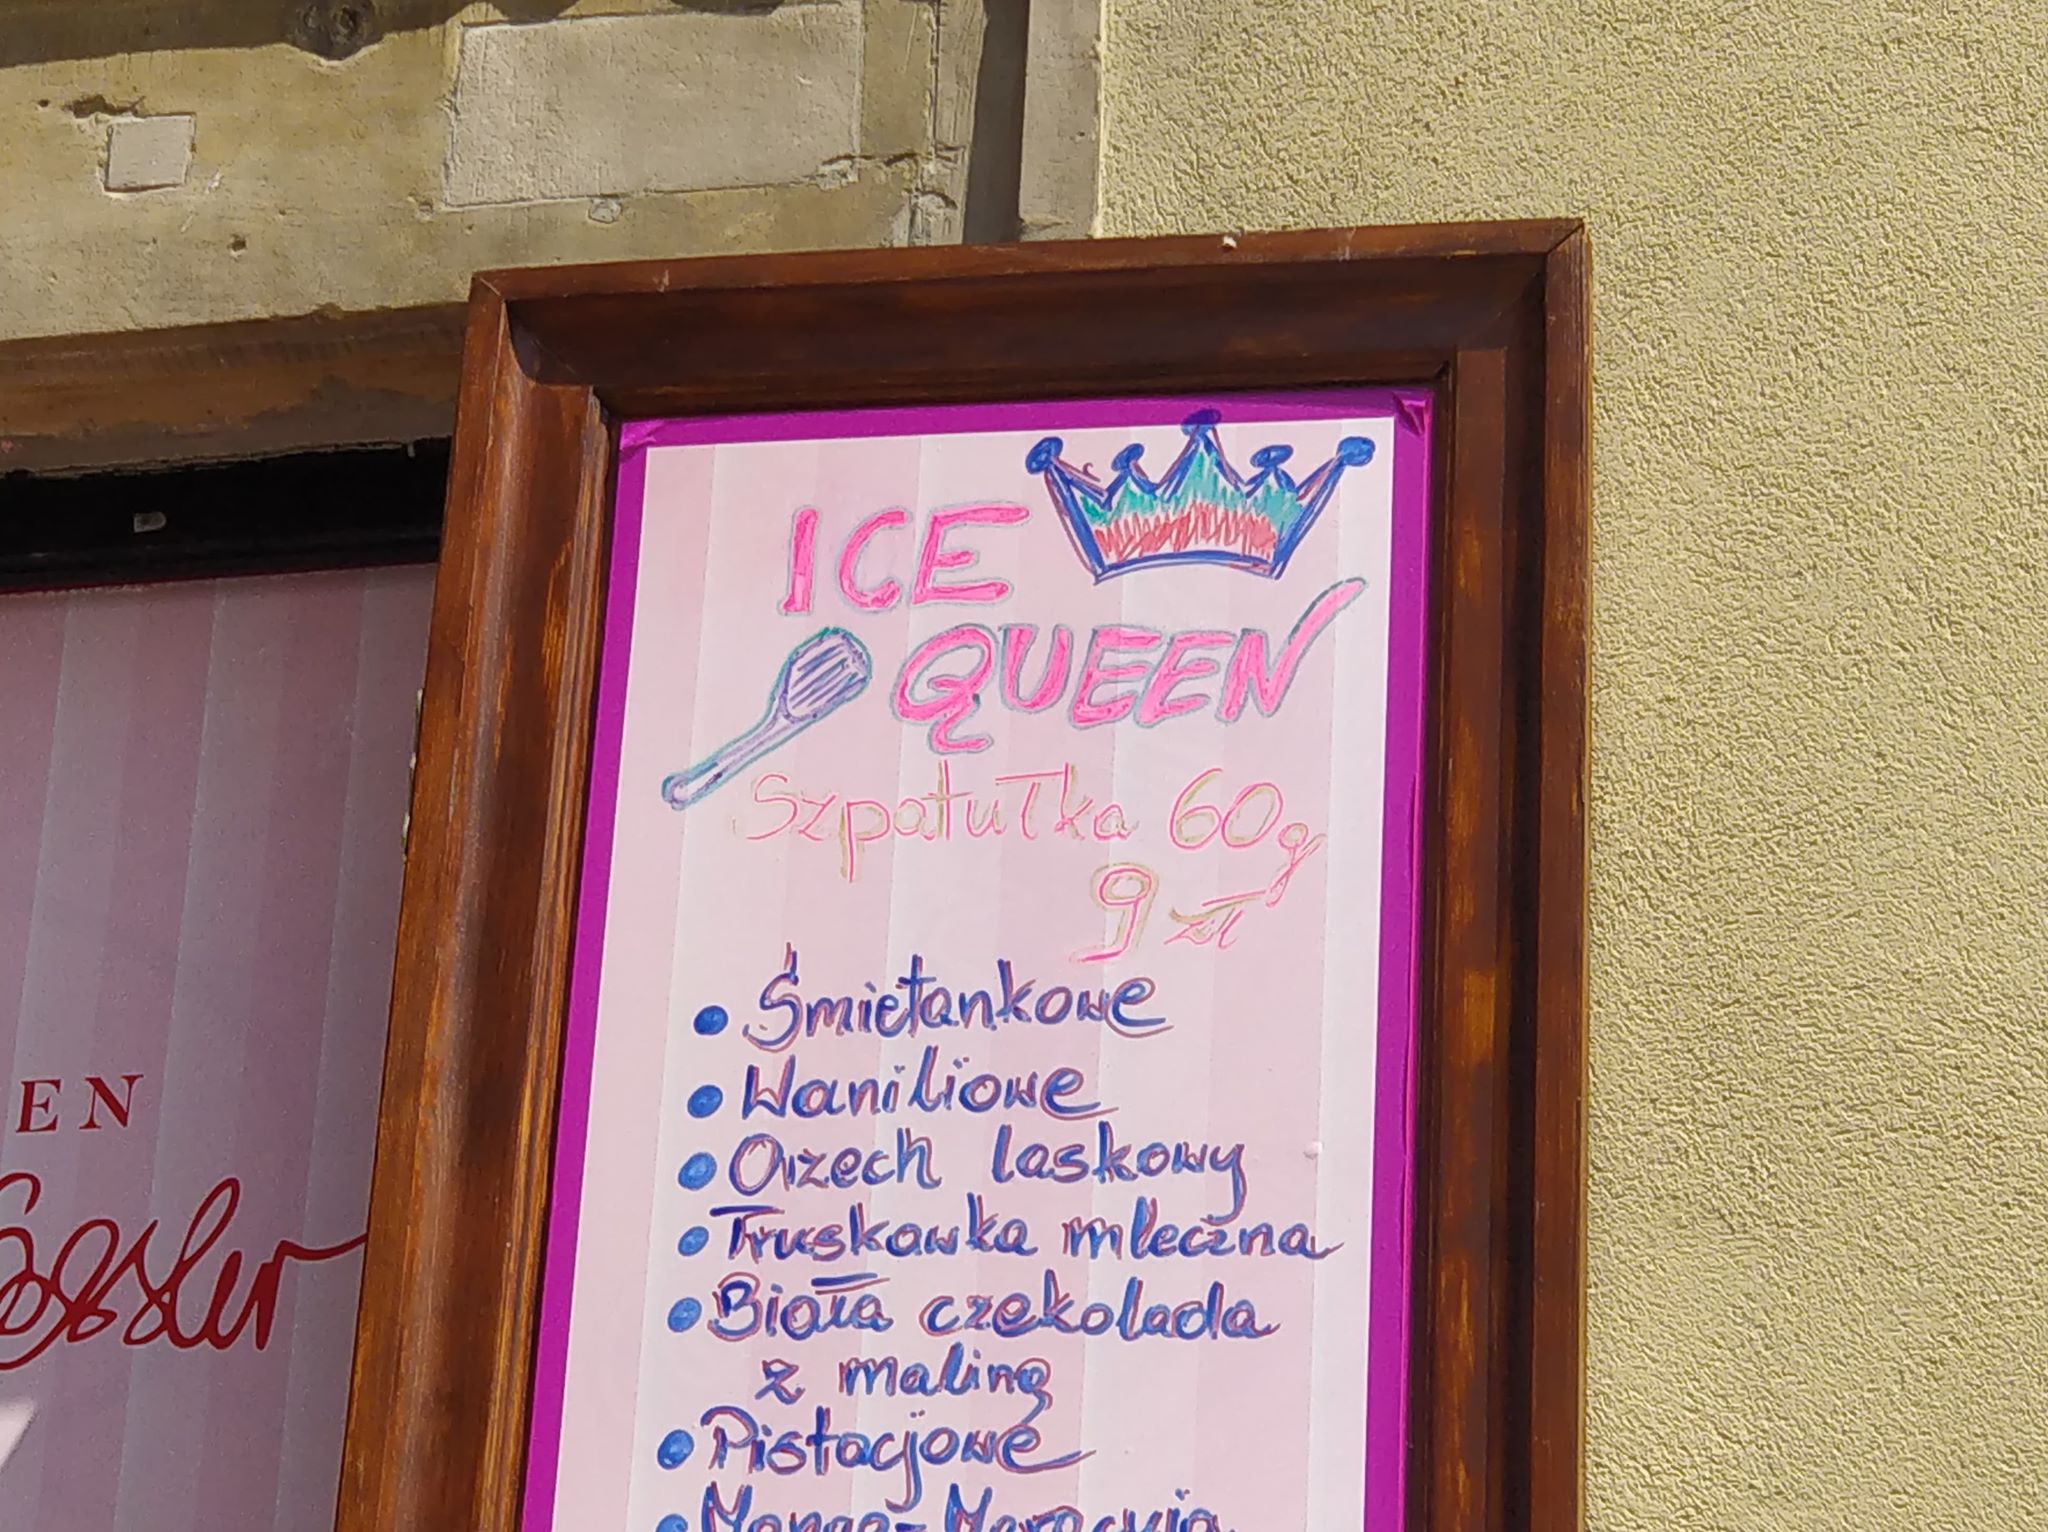 ICE
QUEEN
Szpatułka 60g
9 zł
• Śmietankowe
• Waniliowe
• Orzech laskowy
• Truskawka mleczna
• Biała czekolada
z maliną
• Pistacjowe
• Mango-Maracuja
EN